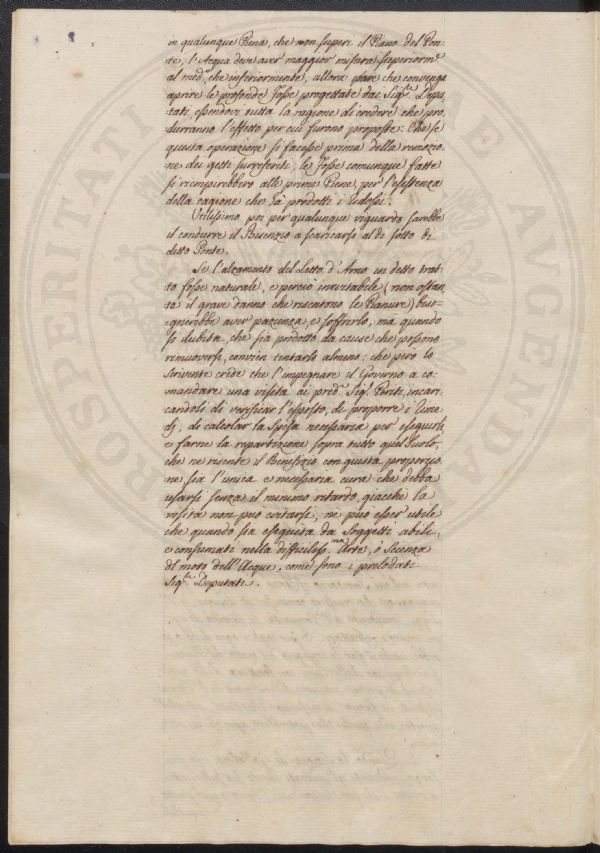 in qualunque Piena, che non superi il Piano del Pon-
te, l'Acqua deve aver maggior misura superiorm.e
al med.o, che inferiormente, allora pare che convenga
aprire le profonde fosse progettate dai Sig.ri Depu-
tati, essendovi tutta la ragione di credere che pro-
durranno l'effetto per cui furono proposte: Che se
questa operazione si facesse prima della remozio-
ne dei getti surreferiti, le fosse comunque fatte
si riempirebbero alle prime Piene, per l'esistenza
della cagione che à prodotti i ridossi.
Utilissimo poi per qualunque riguardo sarebbe
il condurre il Bisenzio a scaricarsi al di sotto di
detto Ponte.
Se l'alzamento del Letto d'Arno in detto trat-
to fosse naturale, e perciò inevitabile (non ostan-
te il grave danno che risentono le Pianure) biso-
gnerebbe aver pazienza, e soffrirlo, ma quando
si dubita, che sia prodotto da cause che possono
rimuoversi, convien tentarlo almeno: che però lo
scrivente crede che l'impegnare il Governo a co-
mandare una visita ai pred. Sig.i Periti, incari-
candoli di verificar l'esposto, di proporre i Rime-
dj, di calcolar la spesa necessaria per eseguirli,
e farne la repartizione sopra tutto quel Suolo,
che ne risente il Benefizio con giusta proporzio-
ne sia l'unica e necessaria cura che debba
usarsi senza il minimo ritardo, giacchè la
visita non può evitarsi, nè può esser utile
che quando sia eseguita da Soggetti abili,
e consumati nella difficiliss.ma Arte, o Scienza
di moto dell'Acque, come sono i prelodati
Sig.ri Deputati.
PROSPERITATI PUBLICAE AUGENDAE